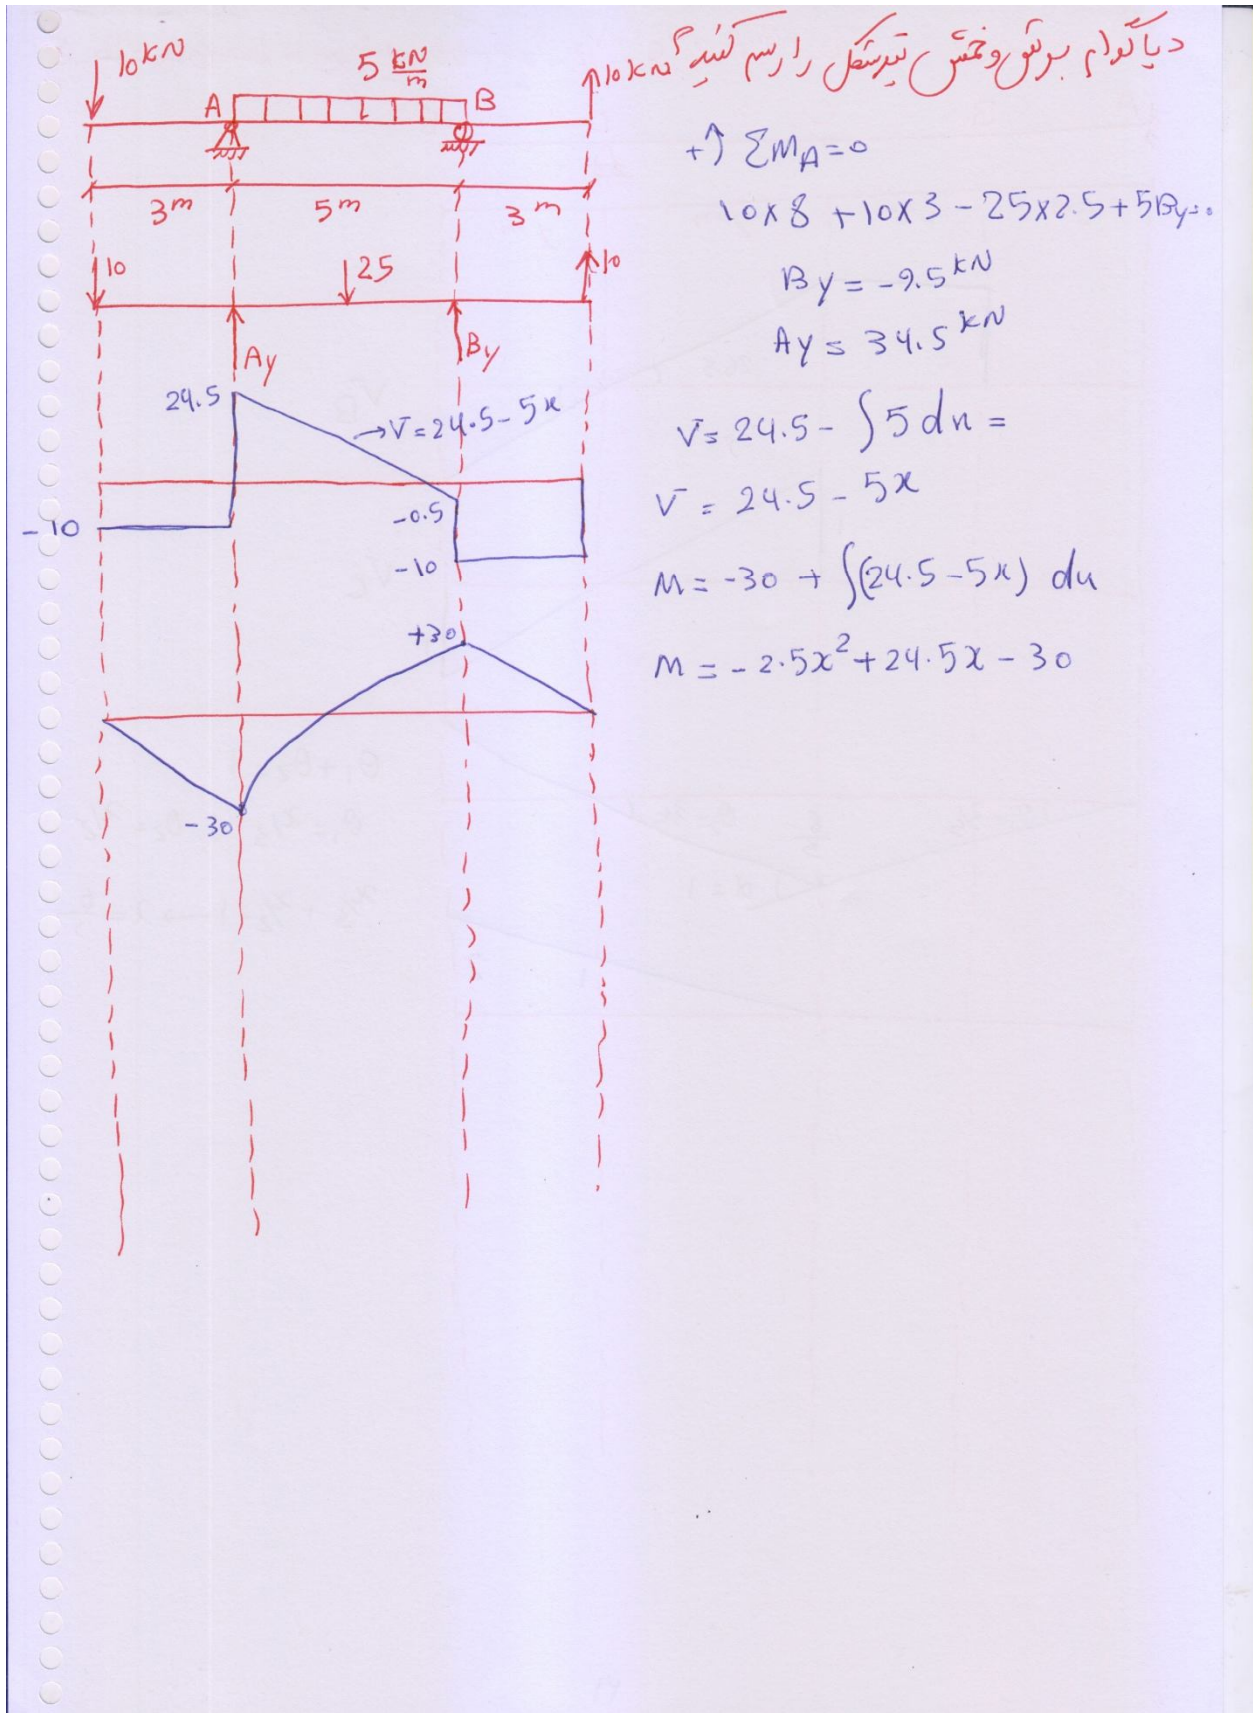 دیاگرام برش و خمش تیر شکل را رسم کنید؟
10 kN
5 kN/m
10 kN
A
B
3 m
5 m
3 m
10
25
10
Ay
By
24.5
→ V = 24.5 - 5x
-10
-0.5
-10
+30
-30
+↑ ΣM_A = 0
10×8 + 10×3 - 25×2.5 + 5By = 0
By = -9.5 kN
Ay = 34.5 kN
V = 24.5 - ∫5 dx =
V = 24.5 - 5x
M = -30 + ∫(24.5 - 5x) dx
M = -2.5x² + 24.5x - 30